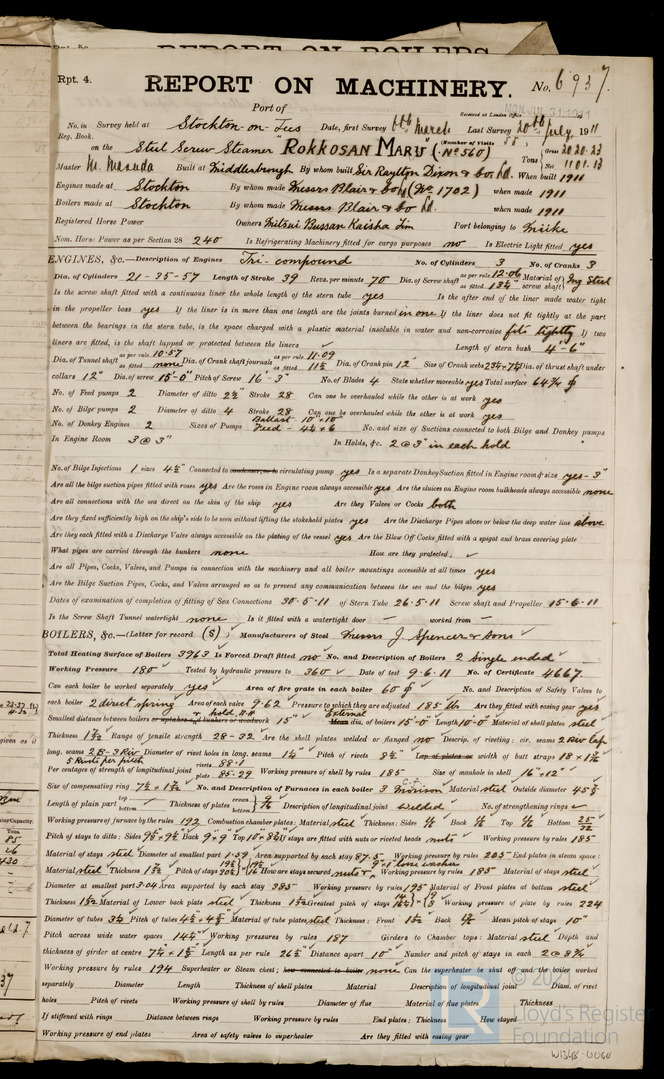 REPORT ON BOILERS
Rpt. 4.
REPORT ON MACHINERY.
No. 6937
Port of
Received at London Office MON. JUL. 31. 1911
No. in Survey held at Stockton-on-Tees Date, first Survey 6th March Last Survey 20th July, 1911
Reg. Book.
(Number of Visits
on the Steel Screw Steamer "ROKKOSAN MARU" (No 560) Tons Gross 2020.23 Net 1101.13
Master M. Masuda Built at Middlesbrough By whom built Sir Raylton Dixon & Co Ld. When built 1911
Engines made at Stockton By whom made Messrs Blair & Co Ld (No 1702) when made 1911
Boilers made at Stockton By whom made Messrs Blair & Co Ld. when made 1911
Registered Horse Power Owners Mitsui Bussan Kaisha Lim Port belonging to Miike
Nom. Horse Power as per Section 28 240 Is Refrigerating Machinery fitted for cargo purposes no Is Electric Light fitted yes
ENGINES, &c.—Description of Engines Tri-compound No. of Cylinders 3 No. of Cranks 3
Dia. of Cylinders 21-35-57 Length of Stroke 39 Revs. per minute 70 Dia. of Screw shaft as per rule 12.06 as fitted 13¼" Material of screw shaft Ing Steel
Is the screw shaft fitted with a continuous liner the whole length of the stern tube yes Is the after end of the liner made water tight
in the propeller boss yes If the liner is in more than one length are the joints burned in one If the liner does not fit tightly at the part
between the bearings in the stern tube, is the space charged with a plastic material insoluble in water and non-corrosive fits tightly If two
liners are fitted, is the shaft lapped or protected between the liners ✓ Length of stern bush 4'-6"
Dia. of Tunnel shaft as per rule 10.57 as fitted none Dia. of Crank shaft journals as per rule 11.09 as fitted 11½ Dia. of Crank pin 12" Size of Crank webs Dia. of thrust shaft under
collars 12" Dia. of screw 15'-0" Pitch of Screw 16'-3" No. of Blades 4 State whether moveable yes Total surface 64¾
No. of Feed pumps 2 Diameter of ditto Stroke 28 Can one be overhauled while the other is at work yes
No. of Bilge pumps 2 Diameter of ditto 4 Stroke 28 Can one be overhauled while the other is at work yes
No. of Donkey Engines 2 Sizes of Pumps Ballast 10"×10" Feed - 4½×6 No. and size of Suctions connected to both Bilge and Donkey pumps
In Engine Room 3 @ 3" In Holds, &c. 2 @ 3" in each hold
No. of Bilge Injections 1 sizes 4½" Connected to condenser, or to circulating pump yes Is a separate Donkey Suction fitted in Engine room & size yes-3"
Are all the bilge suction pipes fitted with roses yes Are the roses in Engine room always accessible yes Are the sluices on Engine room bulkheads always accessible none
Are all connections with the sea direct on the skin of the ship yes Are they Valves or Cocks both
Are they fixed sufficiently high on the ship's side to be seen without lifting the stokehold plates yes Are the Discharge Pipes above or below the deep water line above
Are they each fitted with a Discharge Valve always accessible on the plating of the vessel yes Are the Blow Off Cocks fitted with a spigot and brass covering plate
What pipes are carried through the bunkers none How are they protected. ✓
Are all Pipes, Cocks, Valves, and Pumps in connection with the machinery and all boiler mountings accessible at all times yes
Are the Bilge Suction Pipes, Cocks, and Valves arranged so as to prevent any communication between the sea and the bilges yes
Dates of examination of completion of fitting of Sea Connections 30.5.11 of Stern Tube 26.5.11 Screw shaft and Propeller 15.6.11
Is the Screw Shaft Tunnel watertight none Is it fitted with a watertight door — worked from —
BOILERS, &c.—(Letter for record (S) Manufacturers of Steel Messrs J. Spencer & Sons
Total Heating Surface of Boilers 3963 Is Forced Draft fitted no No. and Description of Boilers 2 single ended
Working Pressure 180 Tested by hydraulic pressure to 360 Date of test 9.6.11 No. of Certificate 4667.
Can each boiler be worked separately yes Area of fire grate in each boiler 60 No. and Description of Safety Valves to
each boiler 2 direct spring Area of each valve 9.62 Pressure to which they are adjusted 185 lb Are they fitted with easing gear yes
Smallest distance between boilers or uptakes and bunkers or woodwork 15" External dia. of boilers 15'-0" Length 10'-0" Material of shell plates steel
Thickness Range of tensile strength 28-32 Are the shell plates welded or flanged no Descrip. of riveting: cir. seams 2 Riv Lap
long. seams Diameter of rivet holes in long. seams 1¼" Pitch of rivets Lap of plates or width of butt straps
5 Rivets per pitch
Per centages of strength of longitudinal joint rivets 88.1 plate 85.29 Working pressure of shell by rules 185 Size of manhole in shell 16"×12"
Size of compensating ring No. and Description of Furnaces in each boiler 3 Morison Material steel Outside diameter
Length of plain part top bottom Thickness of plates crown bottom Description of longitudinal joint welded No. of strengthening rings ✓
Working pressure of furnace by the rules 192 Combustion chamber plates: Material steel Thickness: Sides Back Top Bottom
Pitch of stays to ditto: Sides Back 9"×9" Top If stays are fitted with nuts or riveted heads nuts Working pressure by rules 185
Material of stays steel Diameter at smallest part 1.59 Area supported by each stay 87.5 Working pressure by rules 205 End plates in steam space:
Material steel Thickness Pitch of stays How are stays secured Working pressure by rules 185 Material of stays steel
Diameter at smallest part 3.04 Area supported by each stay 385 Working pressure by rules 195 Material of Front plates at bottom steel
Thickness Material of Lower back plate steel Thickness Greatest pitch of stays Working pressure of plate by rules 224
Diameter of tubes Pitch of tubes Material of tube plates steel Thickness: Front Back Mean pitch of stays 10"
Pitch across wide water spaces Working pressures by rules 187 Girders to Chamber tops: Material steel Depth and
thickness of girder at centre Length as per rule Distance apart 10" Number and pitch of stays in each 2 @ 8¾
Working pressure by rules 194 Superheater or Steam chest; how connected to boiler none Can the superheater be shut off and the boiler worked
separately Diameter Length Thickness of shell plates Material Description of longitudinal joint Diam. of rivet
holes Pitch of rivets Working pressure of shell by rules Diameter of flue Material of flue plates Thickness
If stiffened with rings Distance between rings Working pressure by rules End plates: Thickness How stayed
Working pressure of end plates Area of safety valves to superheater Are they fitted with easing gear
© 2021
LR
Lloyd's Register
Foundation
W1348-0060